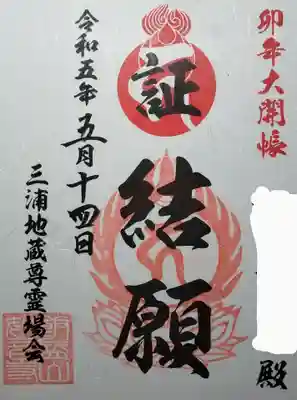 卯年大開帳
殿
証
結願
令和五年五月十四日
三浦地蔵尊霊場会